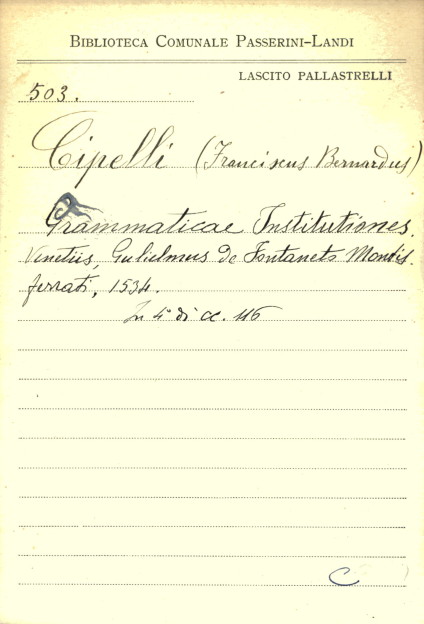 BIBLIOTECA COMUNALE PASSERINI-LANDI
LASCITO PALLASTRELLI
503.
Cipelli (Franciscus Bernardus)
Grammaticae Institutiones.
Venetiis, Gulielmus de Fontaneto Montis.
ferrati, 1534.
In 4° di cc. 116
C